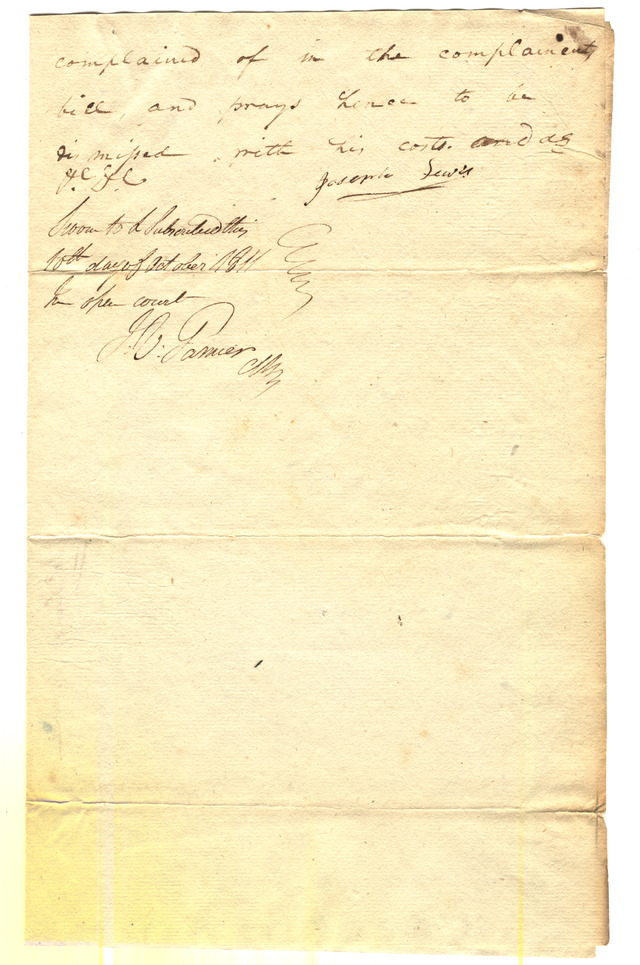 complained of in the complainents
bill, and prays hence to be
dismissed with his costs. and as
&C &C Joseph Lewis
Sworn to & Subscribed this
10th day of October 1811
In open court